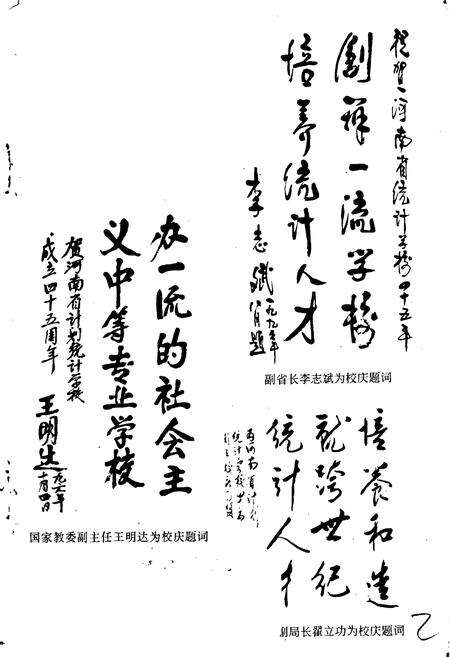 祝贺河南省统计学校四十五年
创祥一流学校
培养统计人才
李志斌
一九九六年
题
副省长李志斌为校庆题词
办一流的社会主
义中等专业学校
贺河南省计划统计学校
成立四十五周年
王明达
国家教委副主任王明达为校庆题词
培养和造
就跨世纪
统计人才
副局长翟立功为校庆题词